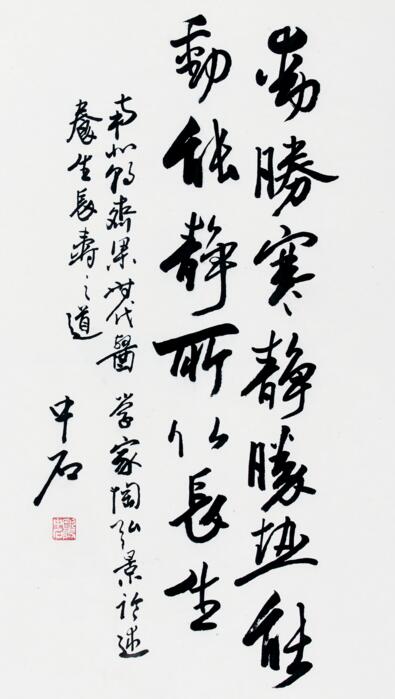 動勝寒静勝热能
動能静所以長生
南北朝齊梁时代醫学家陶弘景论述
養生長壽之道
中石